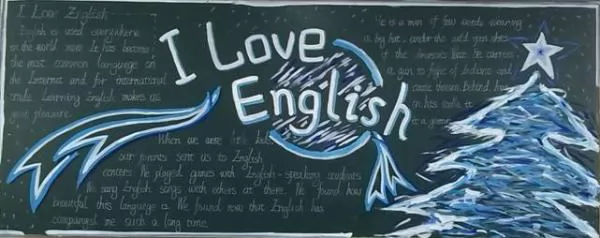 I Love English
English is used everywhere
in the world now. It has become
the most common language on
the Internet and for international
trade. Learning English makes us
great pleasure.
I Love
English
He is a man of few words wearing
a big hat under the wild
of the He carries
a gun to fight of Indians and
cattle thieves behind
on his
When we were little kids
our parents sent us to English
corners. We played games with English-speaking students
We sang English songs with others at there. We found how
beautiful this language is. We found now that English has
companied me such a long time.